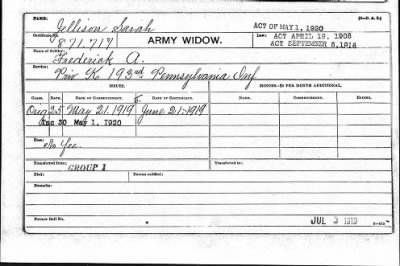 Name: Jellison Sarah (3—D. A. B.)
ACT OF MAY 1, 1920
Certificate No. 871.717 ARMY WIDOW. Law: ACT APRIL 19, 1908
ACT SEPTEMBER 8, 1916
Name of Soldier: Frederick A.
Service: Pvt K, 193rd Pennsylvania Inf
ISSUES. HONORS—$2 PER MONTH ADDITIONAL.
CLASS. RATE. DATE OF COMMENCEMENT. DATE OF CERTIFICATE. NAME. COMMENCEMENT. ENDING.
Orig 25 May 21. 1919 June 21-1919
Inc 30 May 1, 1920
Fees:
No Fee.
Transferred from: GROUP 1 Transferred to:
Died: Person notified:
Remarks:
Former Roll No.
JUL 3 1919